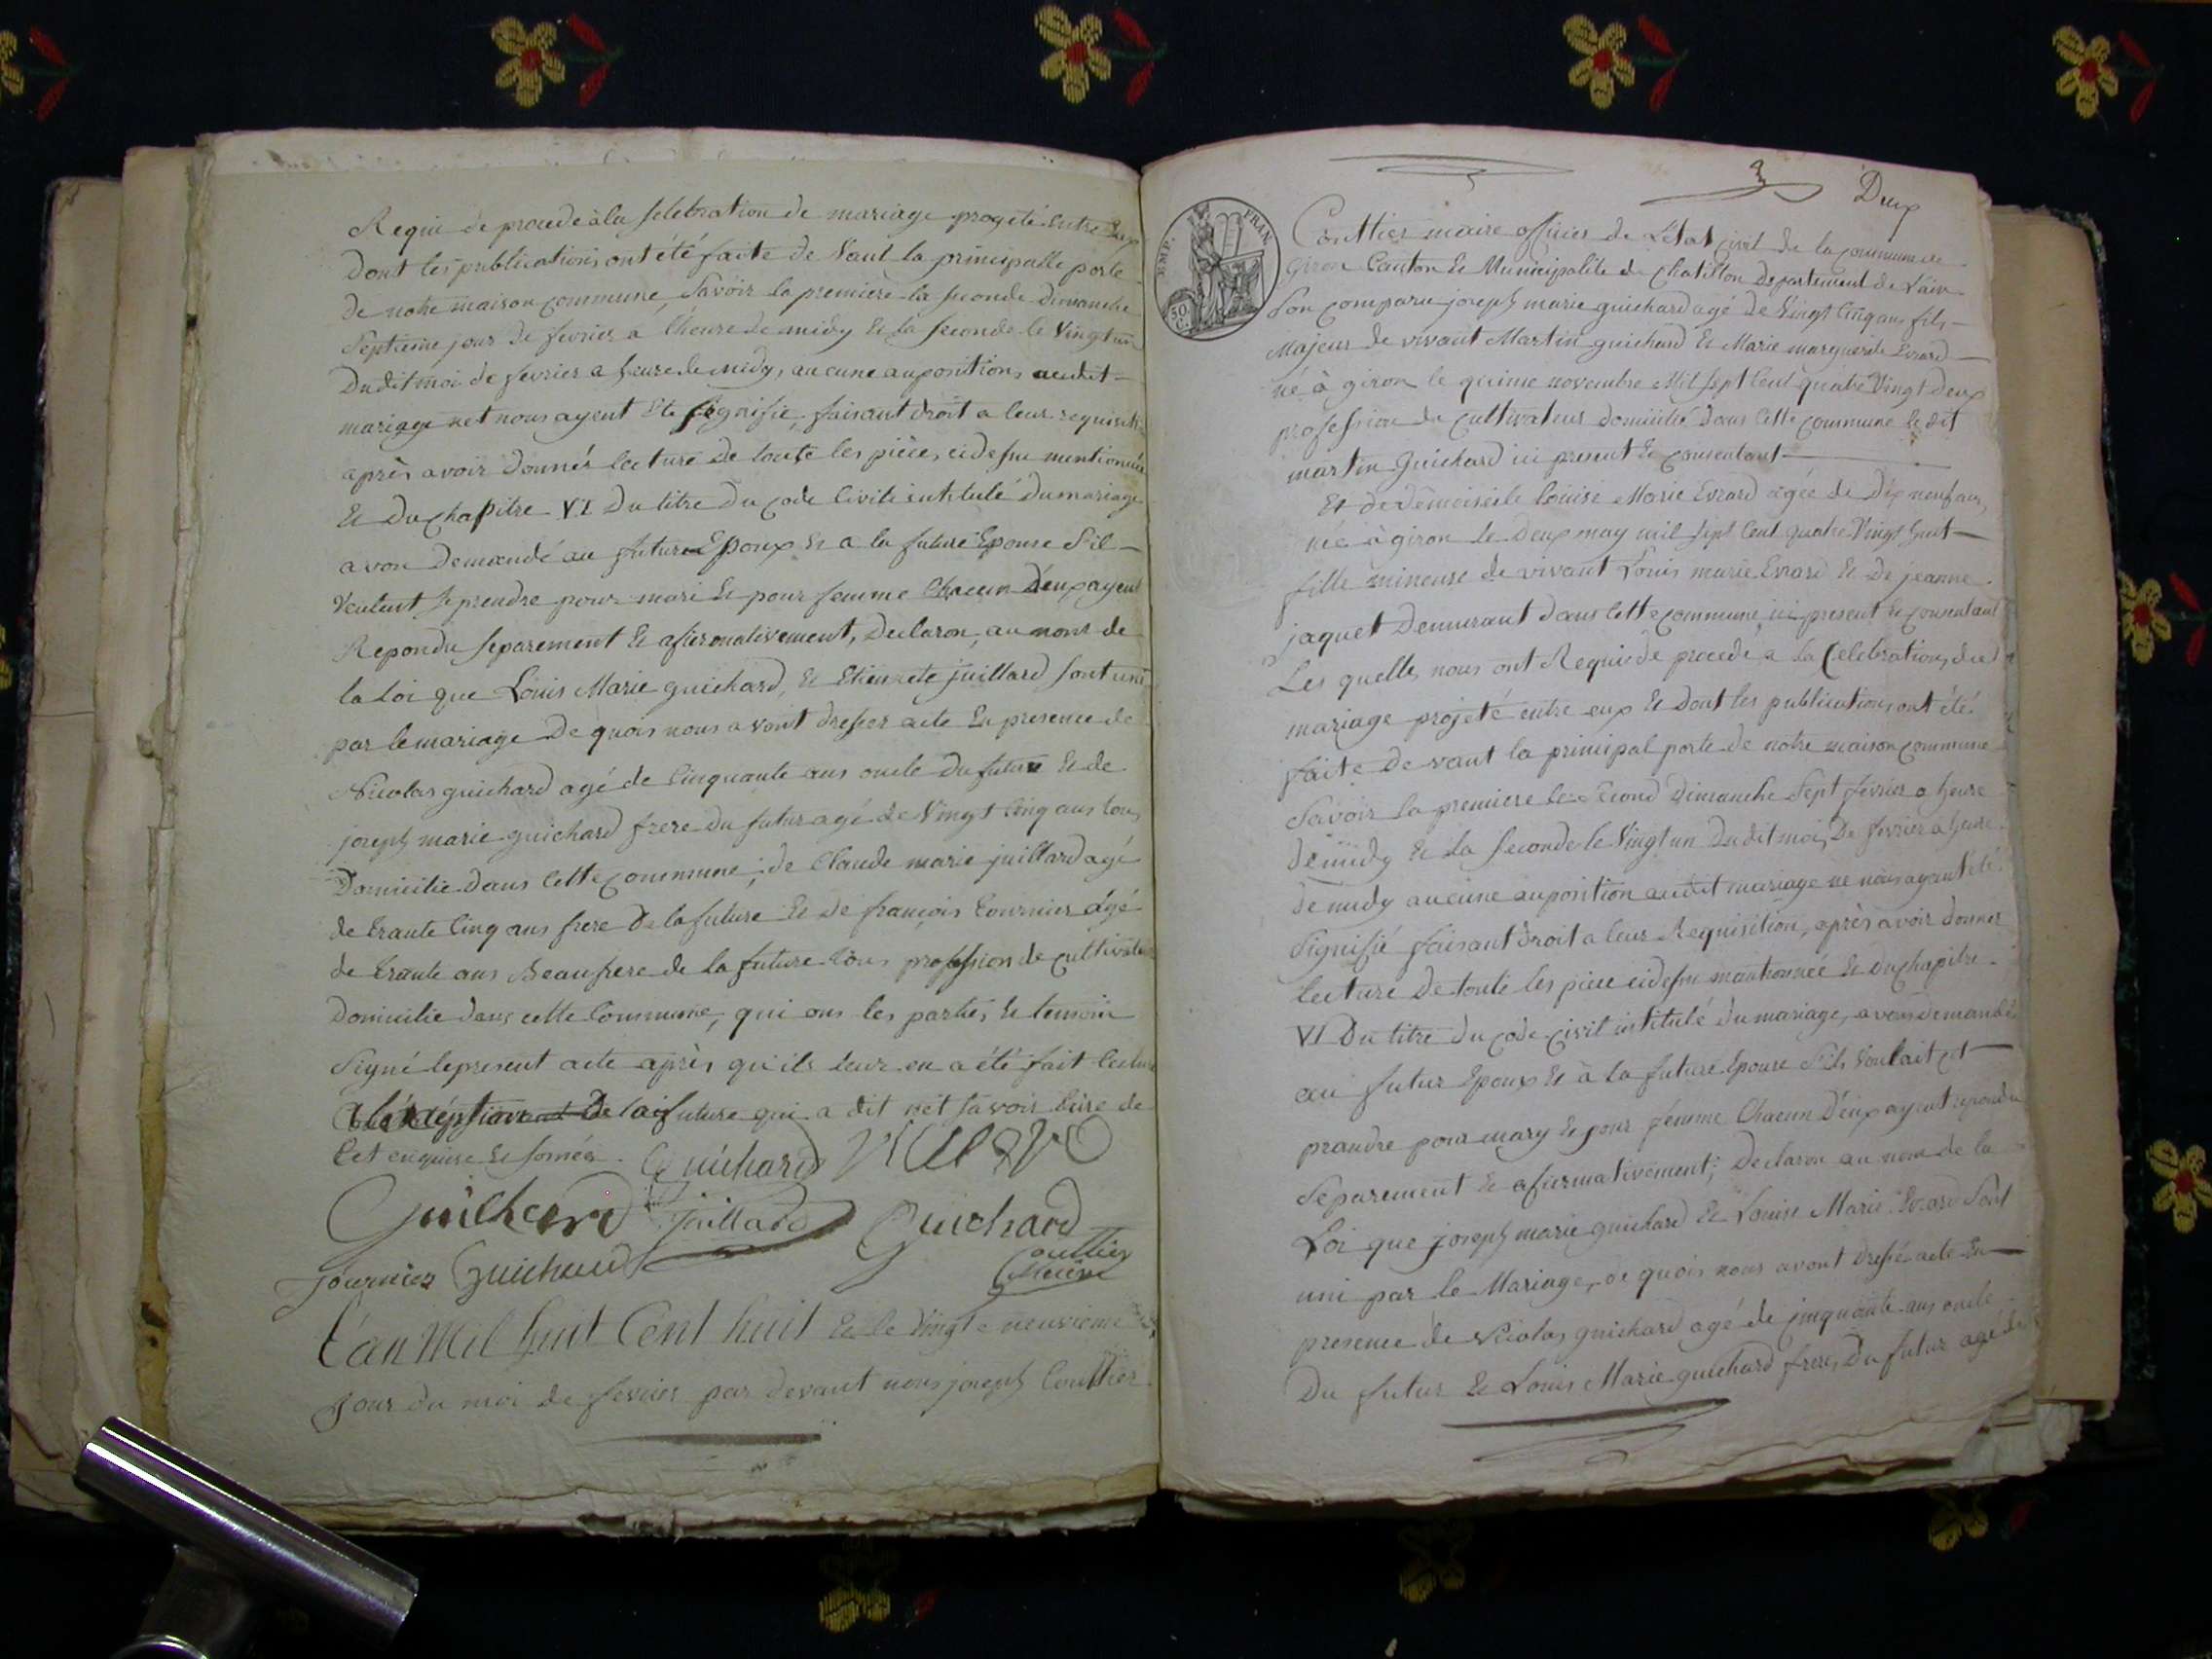 Requi de procede à la selebration de mariage progeté entre Eux
Dont les publications ont été faite de Vant la principalle porte
de notre maison commune, Savoir la première la seconde dimanche
Septieme jour de fevrier a l'heure de midy & la seconde le Vingt un
Dudit moi de fevrier a heure de midy, aucune auposition audit
mariage net nous ayent Ete signifié, faisant droit a leur requisit
après avoir donnés lecture de toute les pièces cidesu mentionnée
Et Du chapitre VI Du titre Du code Civile intitulé Du mariage
avon Demandé au futur Epoux & a la future Epouse S'il
Veulent se prendre pour mari & pour femme Chacun D'eux ayent
Repondu separement & afirmativement, Declaron, au nom de
la Loi que Louis Marie guichard, & Etiennete juillard sont uni
par le mariage De quois nous avont dresser acte En presence de
Nicolas guichard agé de Cinquante ans oncle Du futur & de
joseph marie guichard frere du futur agé de Vingt Cinq ans tous
Domicilie dans Cette commune; de Claude marie juillard agé
de trante Cinq ans frere De la future & De françois tournier âgé
de trante ans Beaufrere de la future tous profession de cultivateur
Domicilie dans cette Commune, qui ons les parties & temoin
Signé le present acte après qu'ils leur en a été fait lecture
de la future qui a dit net savoir Ecrire de
Cet enquise & somée. Guichard
Guichard juillard Guichard
fournier Guichard Couttier
Maire
L'an Mil huit Cent huit & le Vingt e neuvieme
Jour du moi de fevrier par devant nous joseph Couttier
3 Deux
EMP. FRAN.
50 C.
Couttier maire officier de L'état civil de la commune de
Giron Canton & Municipalité de Chatillon Departement de L'ain
Son comparu joseph marie guichard agé de Vingt Cinq ans fils
Majeur de vivant Martin guichard & Marie marguerite Evrard
né à giron le quinse novembre Mil sept Cent quatre Vingt Deux
profession de cultivateur domicilié dans Cette commune le dit
martin Guichard ici present & consentant
Et de Demoisele Louise Marie Evrard agée de Dix neuf ans,
née à giron le Deux may mil sept Cent quatre Vingt huit
fille mineuse de vivant Louis marie Evrard & De jeanne
jaquet Demurant dans Cette commune, ici present & consentant
Les quelles nous ont Requis de procede a la Celebration, dud
mariage projeté entre eux & Dont les publications ont été
faite De vant la principal porte de notre maison commune
Savoir la premiere le second dimanche Sept fevrier a heure
de midy & la seconde le Vingt un Dudit moi, De fevrier a heure
de midy aucune auposition audit mariage ne nous ayent été
Signifié faisant droit a leur Requisition, après avoir donner
lecture De toute les piece cidesu mantionnée & Du chapitre
VI Du titre du code civil intitulé du mariage, avons demandé
au futur Epoux & à la future Epouse S'ils Voulait et
prandre pour mary & pour femme Chacun D'eux ayent repondu
Separement & afirmativement; Declaron au nom de la
Loi que joseph marie guichard & Louise Marie Evrard Sont
uni par le Mariage, de quois nous avont dressé acte En
presence de Nicolas guichard agé de cinquante ans oncle
Du futur & Louis Marie guichard frere, Du futur age de